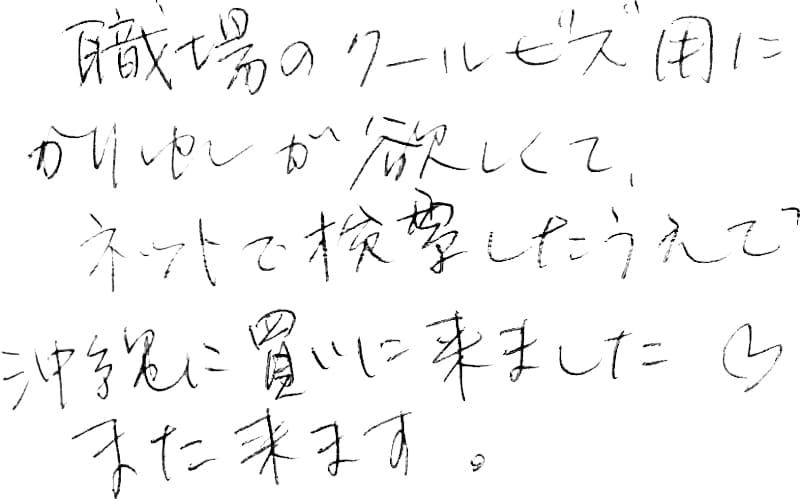 職場のクールビズ用に
かりゆしが欲しくて、
ネットで検索したうえで
沖縄に買いに来ました♡
また来ます。